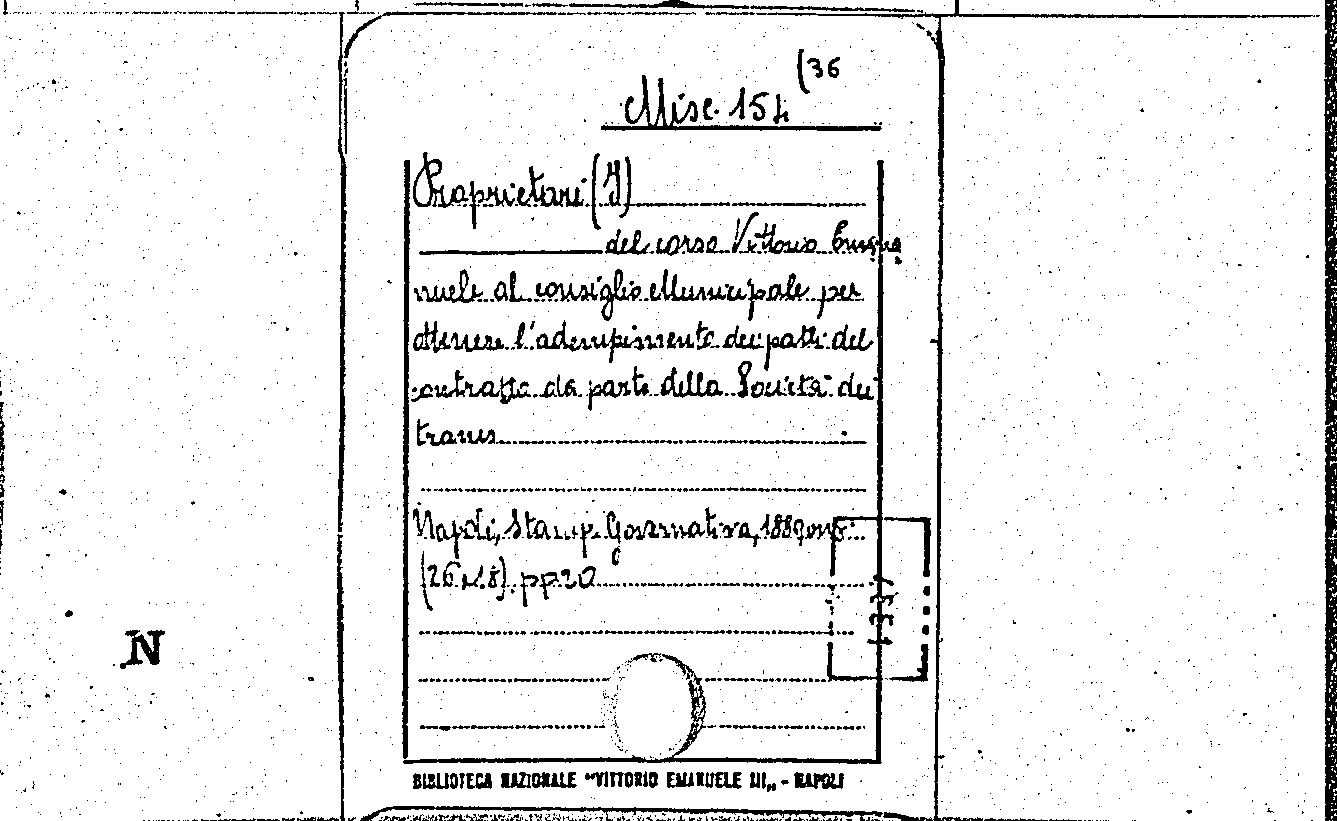 (36
Misc. 154
Proprietari (I)
del corso Vittorio Emma
nuele al consiglio Municipale per
ottenere l'adempimento dei patti del
contratto da parte della Società dei
trams
Napoli, Stamp. Governativa, 1889
(26 n. 8). pp 20
1337
N
BIBLIOTECA NAZIONALE "VITTORIO EMANUELE III„ - NAPOLI